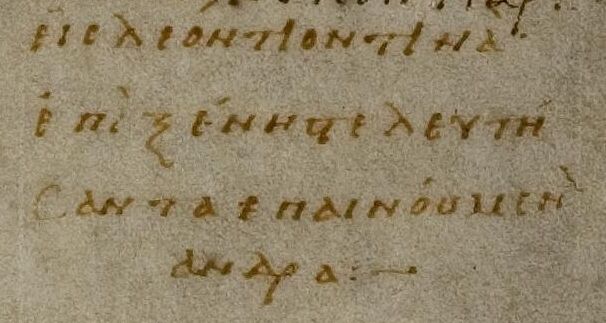 εἰς λεοντιον τινὰ
ἐπὶ ξένης τελευτή
σαντα επαινούμεν
ἀνδρα :—